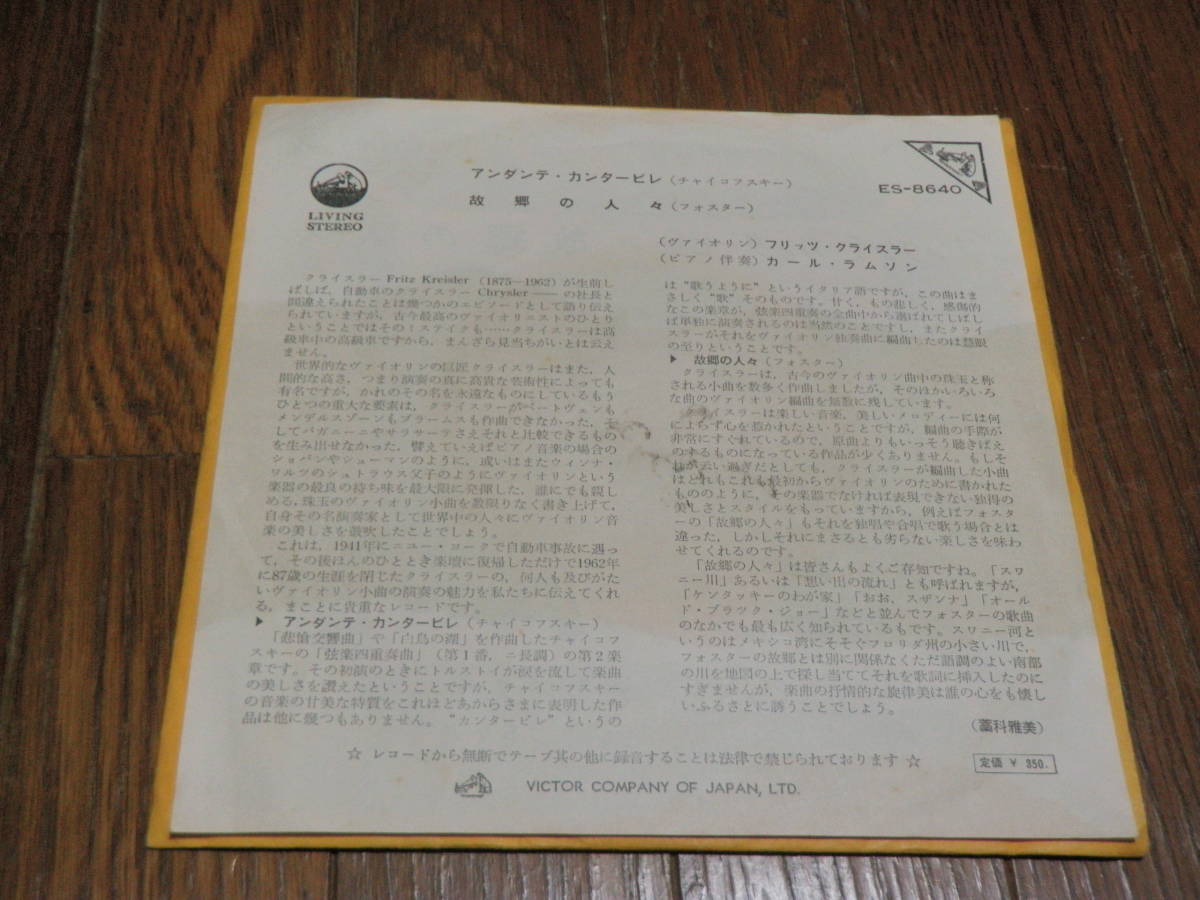 LIVING
STEREO
アンダンテ・カンタービレ(チャイコフスキー)
故郷の人々(フォスター)
ES-8640
(ヴァイオリン) フリッツ・クライスラー
(ピアノ伴奏) カール・ラムソン
クライスラー Fritz Kreisler (1875-1962) が生前し
ばしば,自動車のクライスラー Chrysler —— の社長と
間違えられたことは幾つかのエピソードとして語り伝え
られていますが,古今最高のヴァイオリニストのひとり
ということではその!ステイクも……クライスラーは高
級車中の高級車ですから,まんざら見当ちがいとは云え
ません。
世界的なヴァイオリンの巨匠クライスラーはまた,人
間的な高さ,つまり演奏の真に高貴な芸術性によっても
有名ですが,かれのその名を永遠なものにしているもう
ひとつの重大な要素は,クライスラーがベートヴェンも
メンデルスゾーンもブラームスも作曲できなかった,そ
してパガニーニやサラサーテさえそれと比較できるもの
を生み出せなかった,譬えていえばピアノ音楽の場合の
ショパンやシューマンのように,或いはまたウィンナ・
ワルツのシュトラウス父子のようにヴァイオリンという
楽器の最良の持ち味を最大限に発揮した,誰にでも親し
める,珠玉のヴァイオリン小曲を数限りなく書き上げて,
自身その名演奏家として世界中の人々にヴァイオリン音
楽の美しさを鼓吹したことでしょう。
これは,1941年にニュー・ヨークで自動車事故に遇っ
て,その後ほんのひととき楽壇に復帰しただけで1962年
に87歳の生涯を閉じたクライスラーの,何人も及びがた
いヴァイオリン小曲の演奏の魅力を私たちに伝えてくれ
る,まことに貴重なレコードです。
▶ アンダンテ・カンタービレ (チャイコフスキー)
「悲愴交響曲」や「白鳥の湖」を作曲したチャイコフ
スキーの「弦楽四重奏曲」(第1番,ニ長調) の第2楽
章です。その初演のときにトルストイが涙を流して楽曲
の美しさを讃えたということですが,チャイコフスキー
の音楽の甘美な特質をこれほどあからさまに表明した作
品は他に幾つもありません。“カンタービレ”というの
は“歌うように”というイタリア語ですが,この曲はま
さしく“歌”そのものです。甘く,もの悲しく,感傷的
なこの楽章が,弦楽四重奏の全曲中から選ばれてしばし
ば単独に演奏されるのは当然のことですし,またクライ
スラーがそれをヴァイオリン独奏曲に編曲したのは慧眼
の至りということです。
▶ 故郷の人々 (フォスター)
クライスラーは,古今のヴァイオリン曲中の珠玉と称
される小曲を数多く作曲しましたが,そのほかいろいろ
な曲のヴァイオリン編曲を無数に残しています。
クライスラーは楽しい音楽,美しいメロディーには何
によらず心を惹かれたということですが,編曲の手際が
非常にすぐれているので,原曲よりもいっそう聴きばえ
のするものになっている作品が少くありません。もしそ
れが云い過ぎだとしても,クライスラーが編曲した小曲
はどれもこれも最初からヴァイオリンのために書かれた
もののように,その楽器でなければ表現できない独得の
美しさとスタイルをもっていますから,例えばフォスタ
ーの「故郷の人々」もそれを独唱や合唱で歌う場合とは
違った,しかしそれにまさるとも劣らない楽しさを味わ
せてくれるのです。
「故郷の人々」は皆さんもよくご存知ですね。「スワ
ニー川」あるいは「想い出の流れ」とも呼ばれますが,
「ケンタッキーのわが家」「おお,スザンナ」「オール
ド・ブラック・ジョー」などと並んでフォスターの歌曲
のなかでも最も広く知られているものです。スワニー河と
いうのはメキシコ湾にそそぐフロリダ州の小さい川で,
フォスターの故郷とは別に関係なくただ語調のよい南部
の川を地図の上で探し当ててそれを歌詞に挿入したのに
すぎませんが,楽曲の抒情的な旋律美は誰の心をも懐し
いふるさとに誘うことでしょう。
(藁科雅美)
☆ レコードから無断でテープ其の他に録音することは法律で禁じられております ☆
定価 ¥ 350.
VICTOR COMPANY OF JAPAN, LTD.